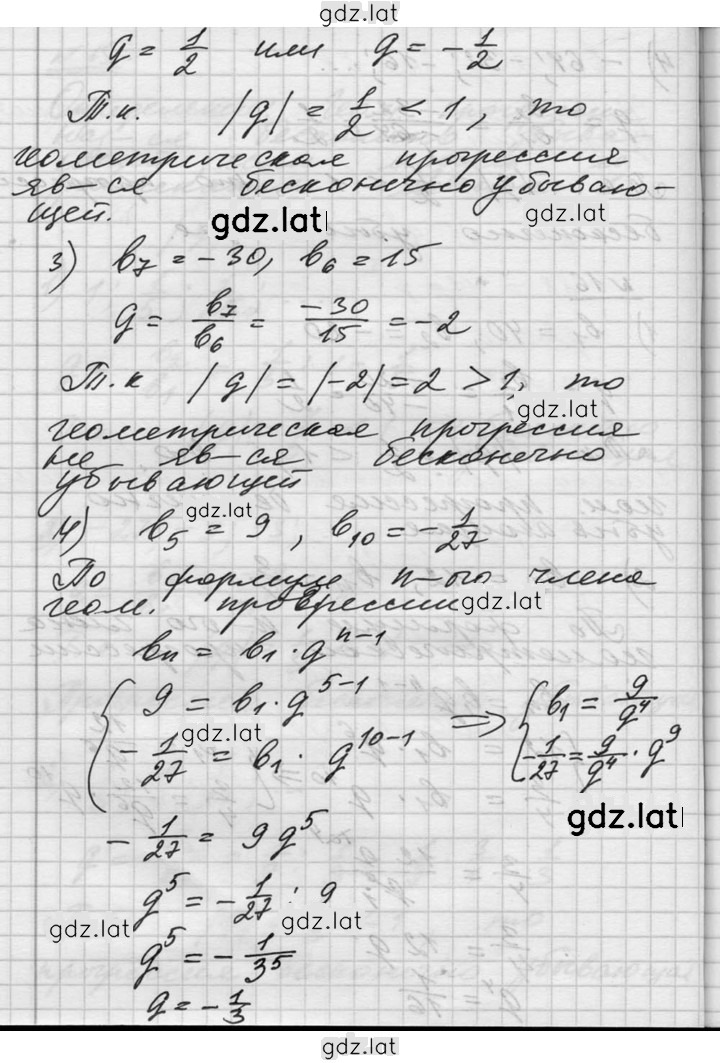 gdz.lat
q = 1/2 или q = -1/2
Т.к. |q| = 1/2 < 1, то
геометрическая прогрессия
яв-ся бесконечно убываю-
щей.
gdz.lat
gdz.lat
3) b₇ = -30, b₆ = 15
q = b₇/b₆ = -30/15 = -2
Т.к |q| = |-2| = 2 > 1, то
gdz.lat
геометрическая прогрессия
не яв-ся бесконечно
убывающей
gdz.lat
4) b₅ = 9, b₁₀ = -1/27
По формуле n-ого члена
геом. прогрессии
gdz.lat
bₙ = b₁·q^(n-1)
{ 9 = b₁·q^(5-1) ⇒ { b₁ = 9/q⁴
gdz.lat
-1/27 = b₁·q^(10-1) -1/27 = 9/q⁴·q⁹
gdz.lat
-1/27 = 9q⁵
q⁵ = -1/27 : 9
gdz.lat
gdz.lat
q⁵ = -1/3⁵
q = -1/3
gdz.lat